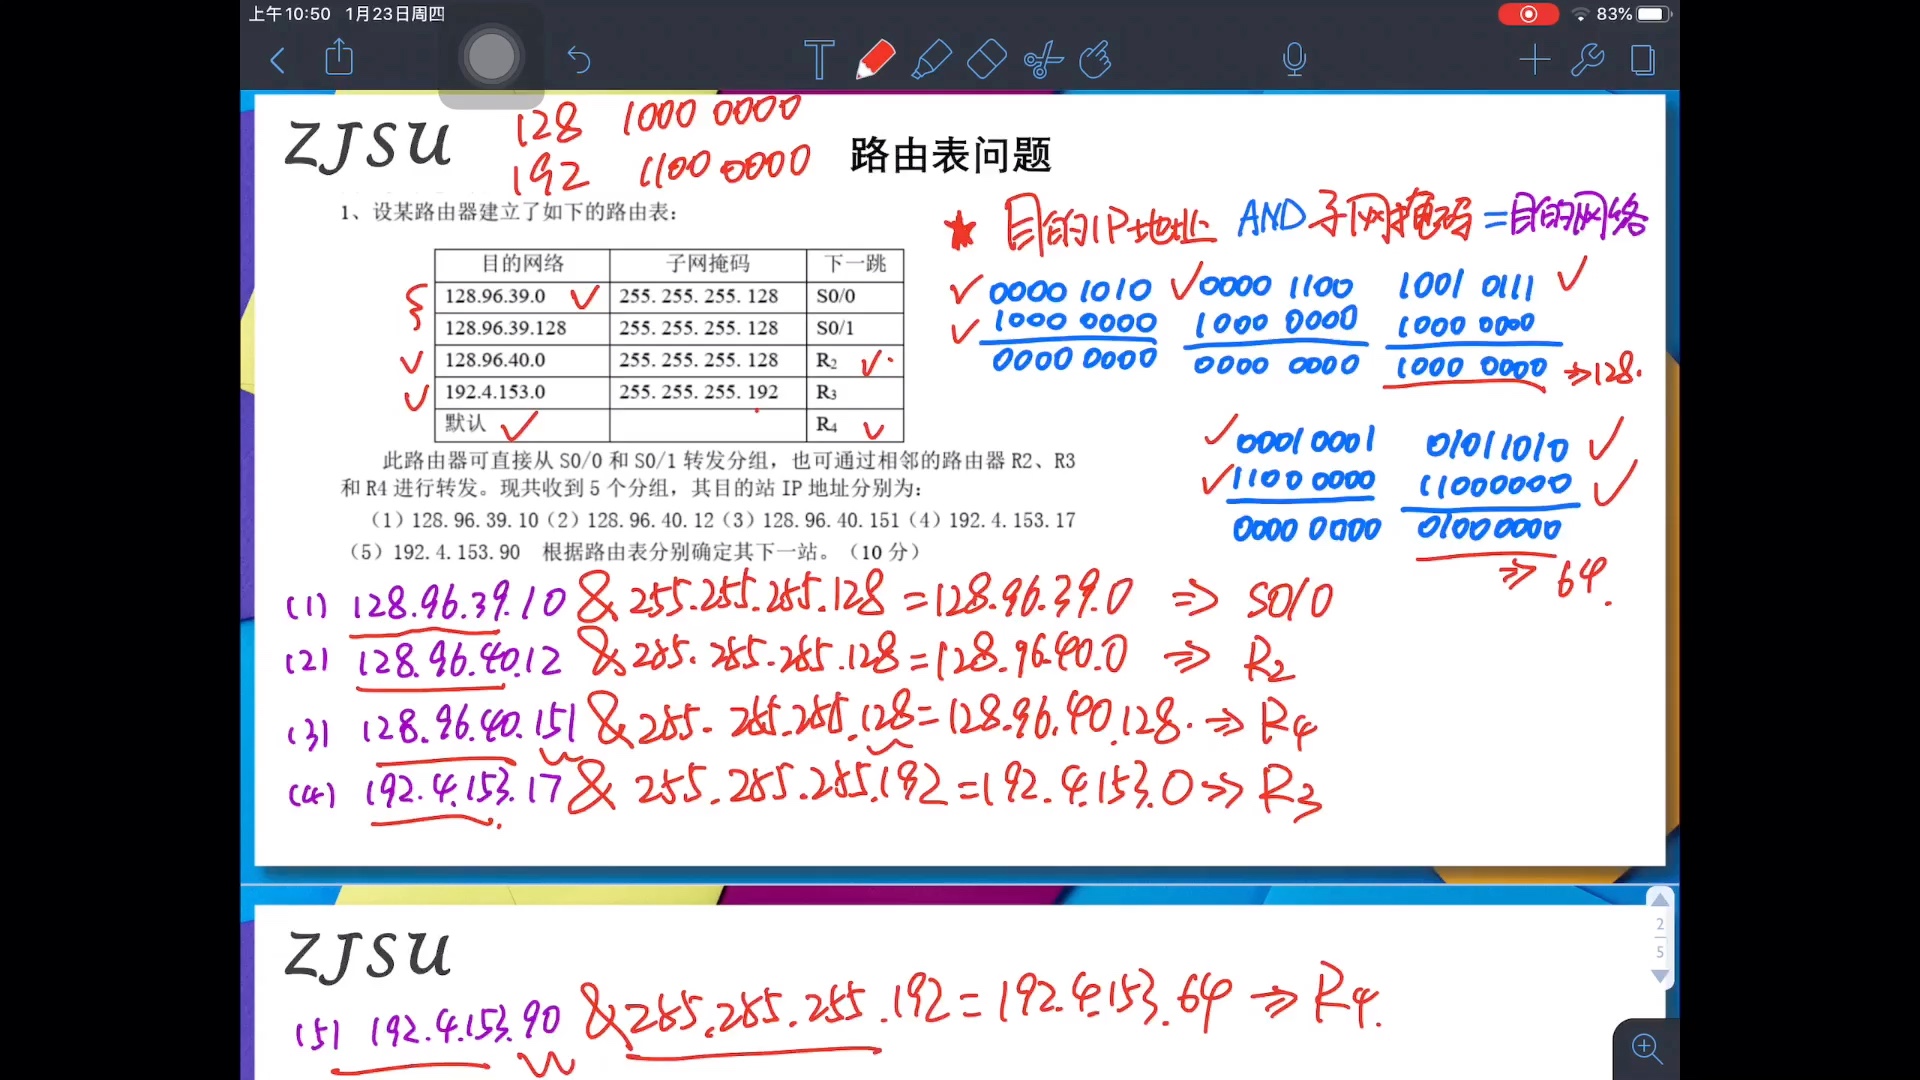 上午10:50 1月23日周四
83%
ZJSU
128 1000 0000
192 1100 0000
路由表问题
1、设某路由器建立了如下的路由表：
目的网络 子网掩码 下一跳
128.96.39.0 255.255.255.128 S0/0
128.96.39.128 255.255.255.128 S0/1
128.96.40.0 255.255.255.128 R2
192.4.153.0 255.255.255.192 R3
默认 R4
★ 目的IP地址 AND 子网掩码 = 目的网络
0000 1010 0000 1100 1001 0111
1000 0000 1000 0000 1000 0000
0000 0000 0000 0000 1000 0000 ⇒128.
00010001 01011010
1100 0000 11000000
0000 0000 01000000
⇒ 64.
此路由器可直接从 S0/0 和 S0/1 转发分组，也可通过相邻的路由器 R2、R3
和 R4 进行转发。现共收到 5 个分组，其目的站 IP 地址分别为：
（1）128.96.39.10（2）128.96.40.12（3）128.96.40.151（4）192.4.153.17
（5）192.4.153.90 根据路由表分别确定其下一站。（10 分）
(1) 128.96.39.10 & 255.255.255.128 = 128.96.39.0 ⇒ S0/0
(2) 128.96.40.12 & 255.255.255.128 = 128.96.40.0 ⇒ R2
(3) 128.96.40.151 & 255.255.255.128 = 128.96.40.128. ⇒ R4
(4) 192.4.153.17 & 255.255.255.192 = 192.4.153.0 ⇒ R3
ZJSU
(5) 192.4.153.90 & 255.255.255.192 = 192.4.153.64 ⇒ R4.
2
5